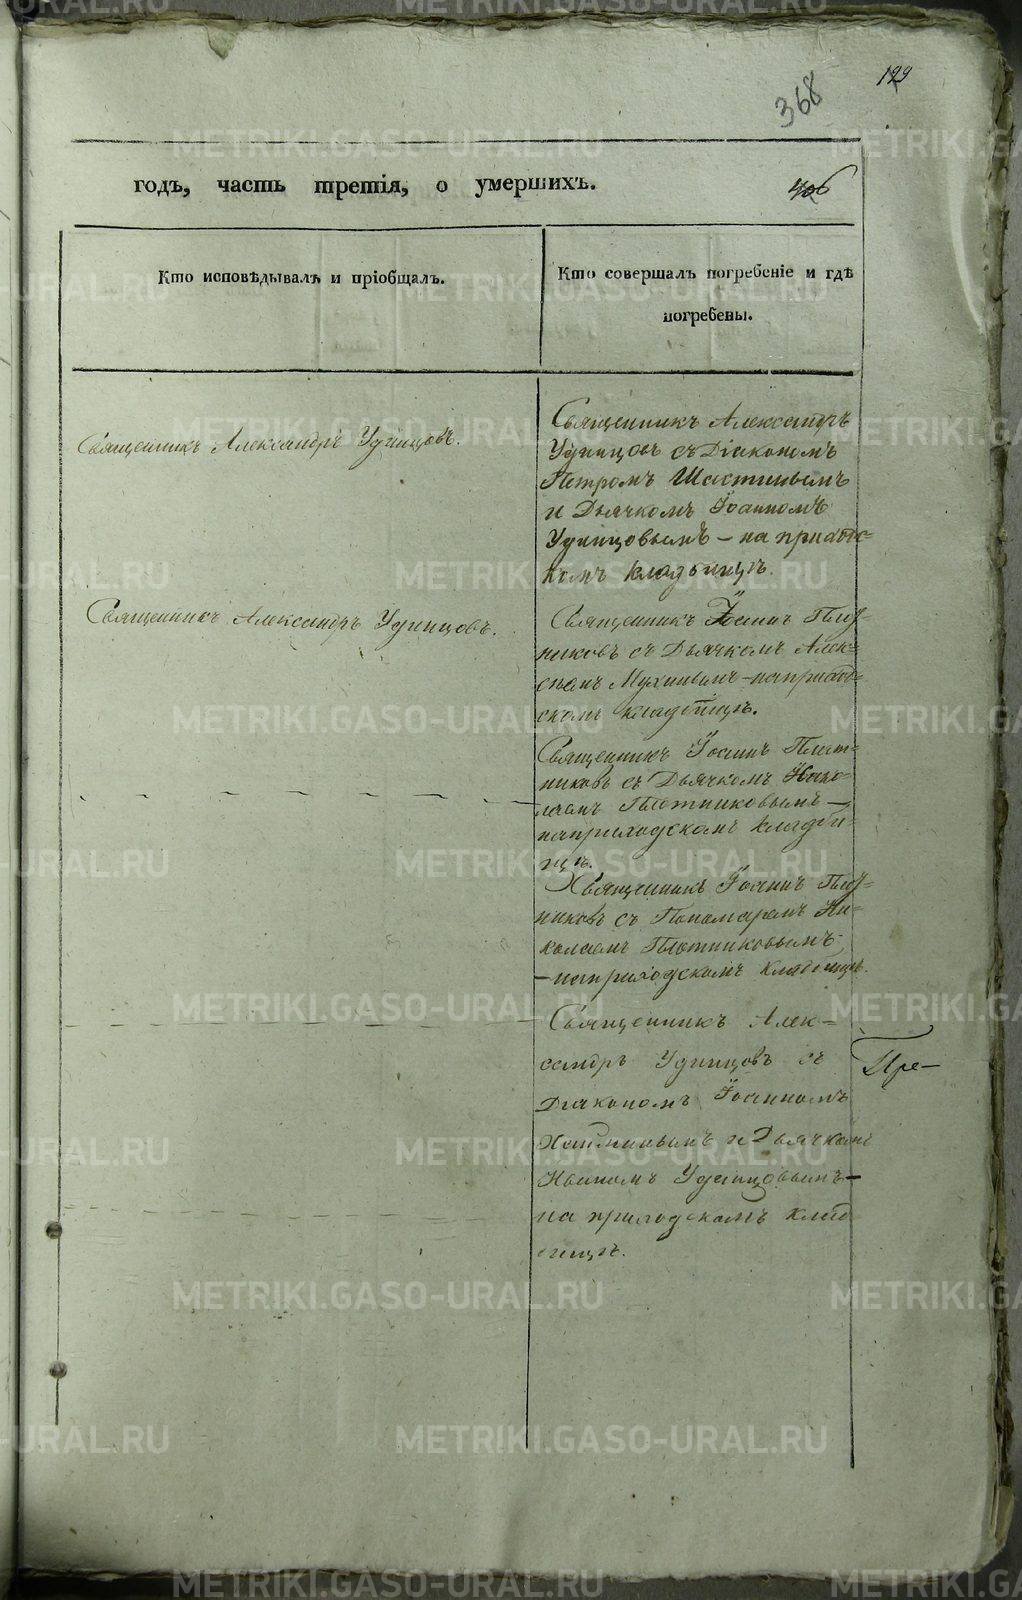 199
368
годъ, часть третія, о умершихъ.
406
Кто исповѣдывалъ и пріобщалъ.
Кто совершалъ погребеніе и гдѣ
погребены.
Священникъ Александръ Удинцовъ.
Священникъ Александръ
Удинцовъ съ Діакономъ
Петромъ Шастинымъ
и Дьячкомъ Іоанномъ
Удинцовымъ – на приход-
комъ кладбищѣ.
Священникъ Александръ Удинцовъ.
Священникъ Іоаннъ Плот-
никовъ съ Дьячкомъ Алек-
сѣемъ Мухинымъ – на приход-
скомъ кладбищѣ.
Священникъ Іоаннъ Плот-
никовъ съ Дьячкомъ Нико-
лаемъ Плотниковымъ –
на приходскомъ кладби-
щѣ.
Священникъ Іоаннъ Плот-
никовъ съ Пономаремъ Ни-
колаемъ Плотниковымъ
– на приходскомъ кладбищѣ.
Священникъ Алек-
сандръ Удинцовъ съ
Діакономъ Іоанномъ
и Дьячкомъ
Иваномъ Удинцовымъ –
на приходскомъ клад
бищѣ.
Пре-
METRIKI.GASO-URAL.RU